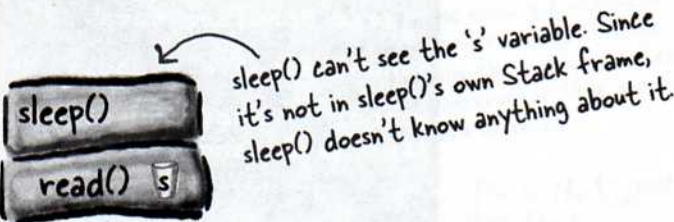 sleep() can't see the 's' variable. Since
it's not in sleep()'s own Stack frame,
sleep() doesn't know anything about it.
sleep()
read() s